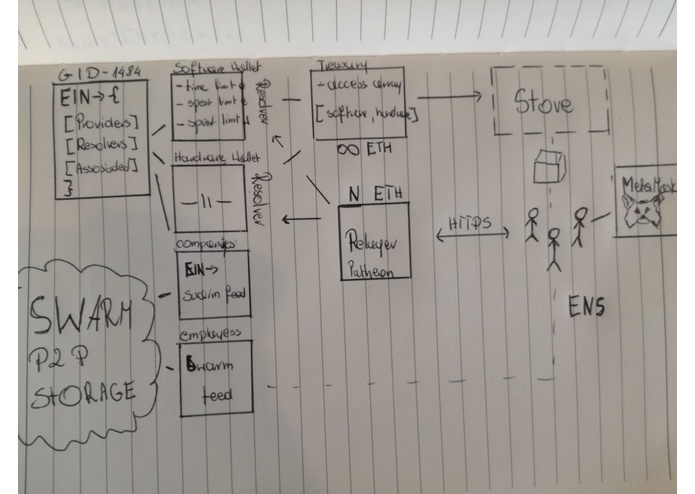 GID-1484
EIN→{
[Providers]
[Resolvers]
[Associaded]
}
Software Wallet
- time limit
- spent limit
- spent limit
Resolver
Hardware Wallet
—11—
Resolver
companies
EIN→
feed
employess
Swarm
feed
SWARM
P2P
STORAGE
Treasury
[software, hardware]
∞ ETH
N ETH
Relayer
HTTPS
Store
MetaMask
ENS